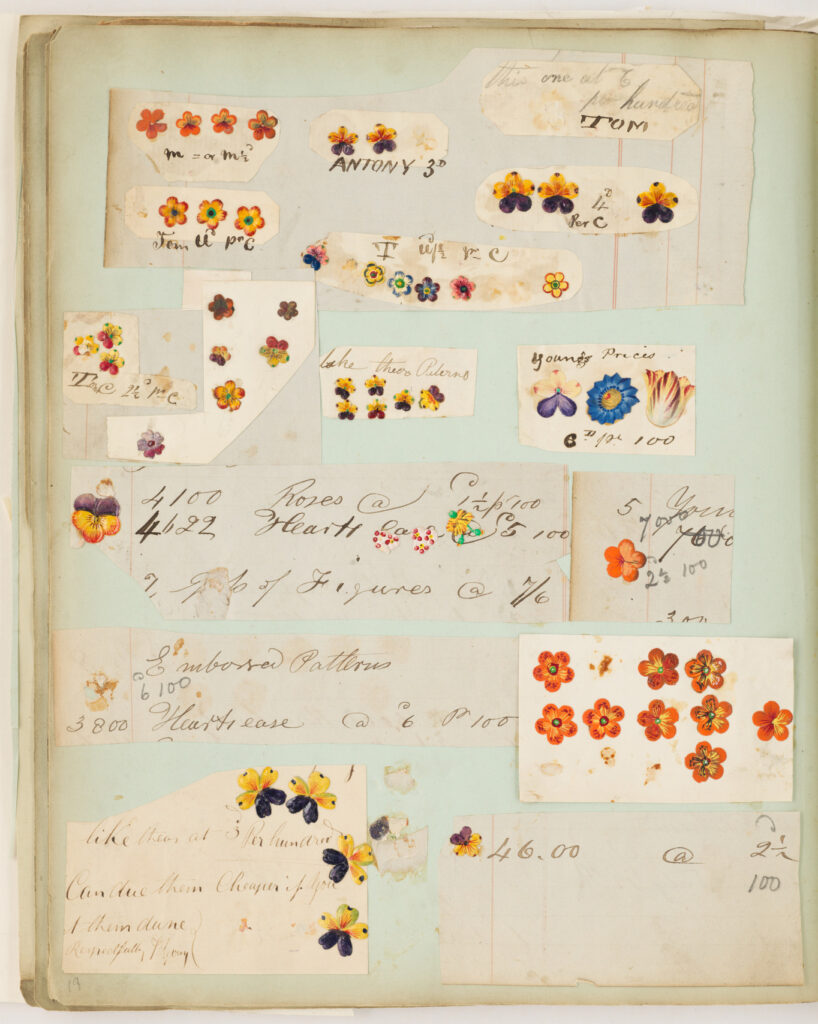 this one at 6
pr hundred
TOM
m = a m½
ANTONY 3D
4D
Per C
Tom pr C
T pr C
T & C 2½ pr C
like theos Paterns
Young's Prices
6D pr 100
4100 Roses @ 1½ p 100
4622 Hearts 100
7 of Figures @ 7/6
5 Youn
7000
2½ 100
Embossed Patterns
6 100
3800 Heartsease @ 6 P 100
like theos at 3 Per hundred
Can due them Cheaper if you
them dune
Respectfully
46.00 @ 2½
100
19